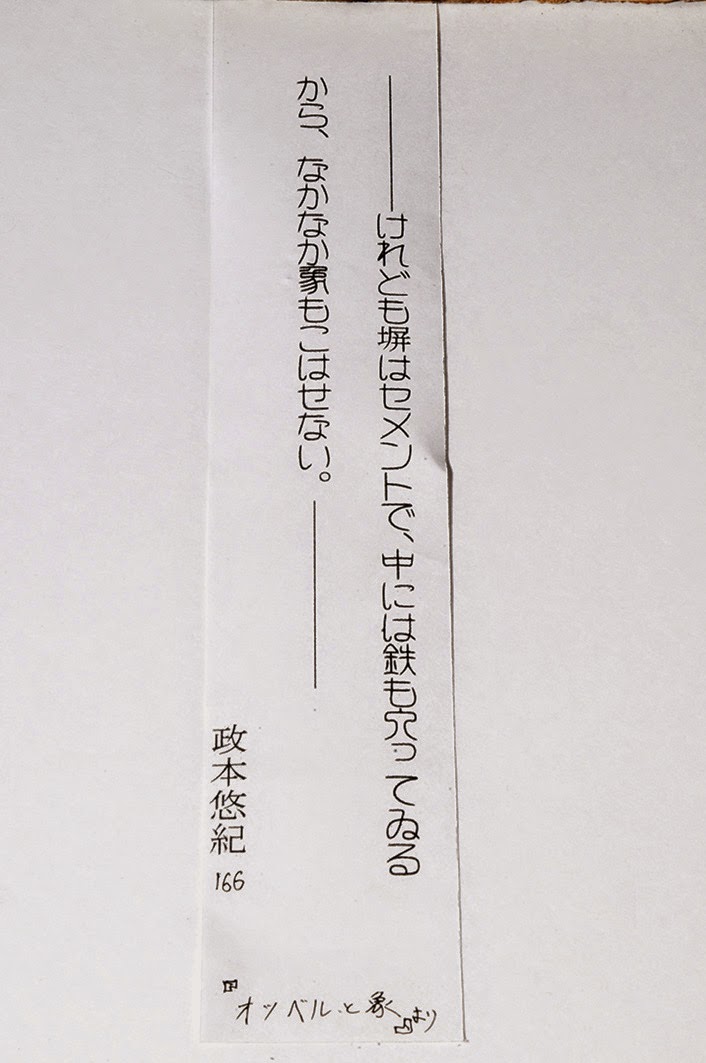 ――けれども塀はセメントで、中には鉄も穴ってゐる
から、なかなか象もこはせない。――
政本悠紀
166
『オッベルと象』より